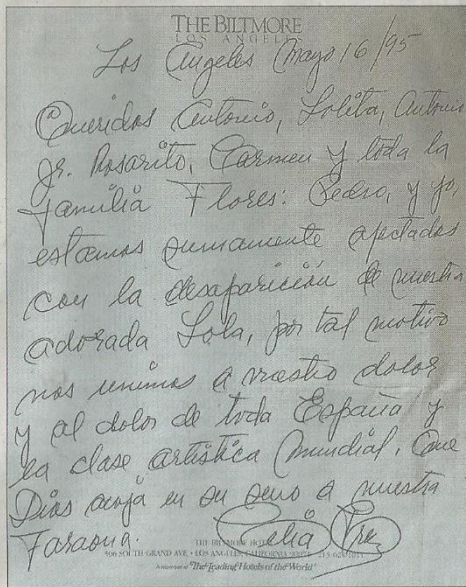 THE BILTMORE
LOS ANGELES
Los Angeles Mayo 16/95
Queridos Antonio, Lolita, Antonio
Jr. Rosarito, Carmen y toda la
familia Flores: Pedro, y yo,
estamos sumamente afectados
con la desaparición de nuestra
adorada Lola, por tal motivo
nos unimos a vuestro dolor
y al dolor de toda España y
la clase artística Mundial. Que
Dios acoja en su seno a nuestra
Faraona. Celia Cruz
THE BILTMORE HOTEL
506 SOUTH GRAND AVE • LOS ANGELES, CALIFORNIA
"The Leading Hotels of the World"